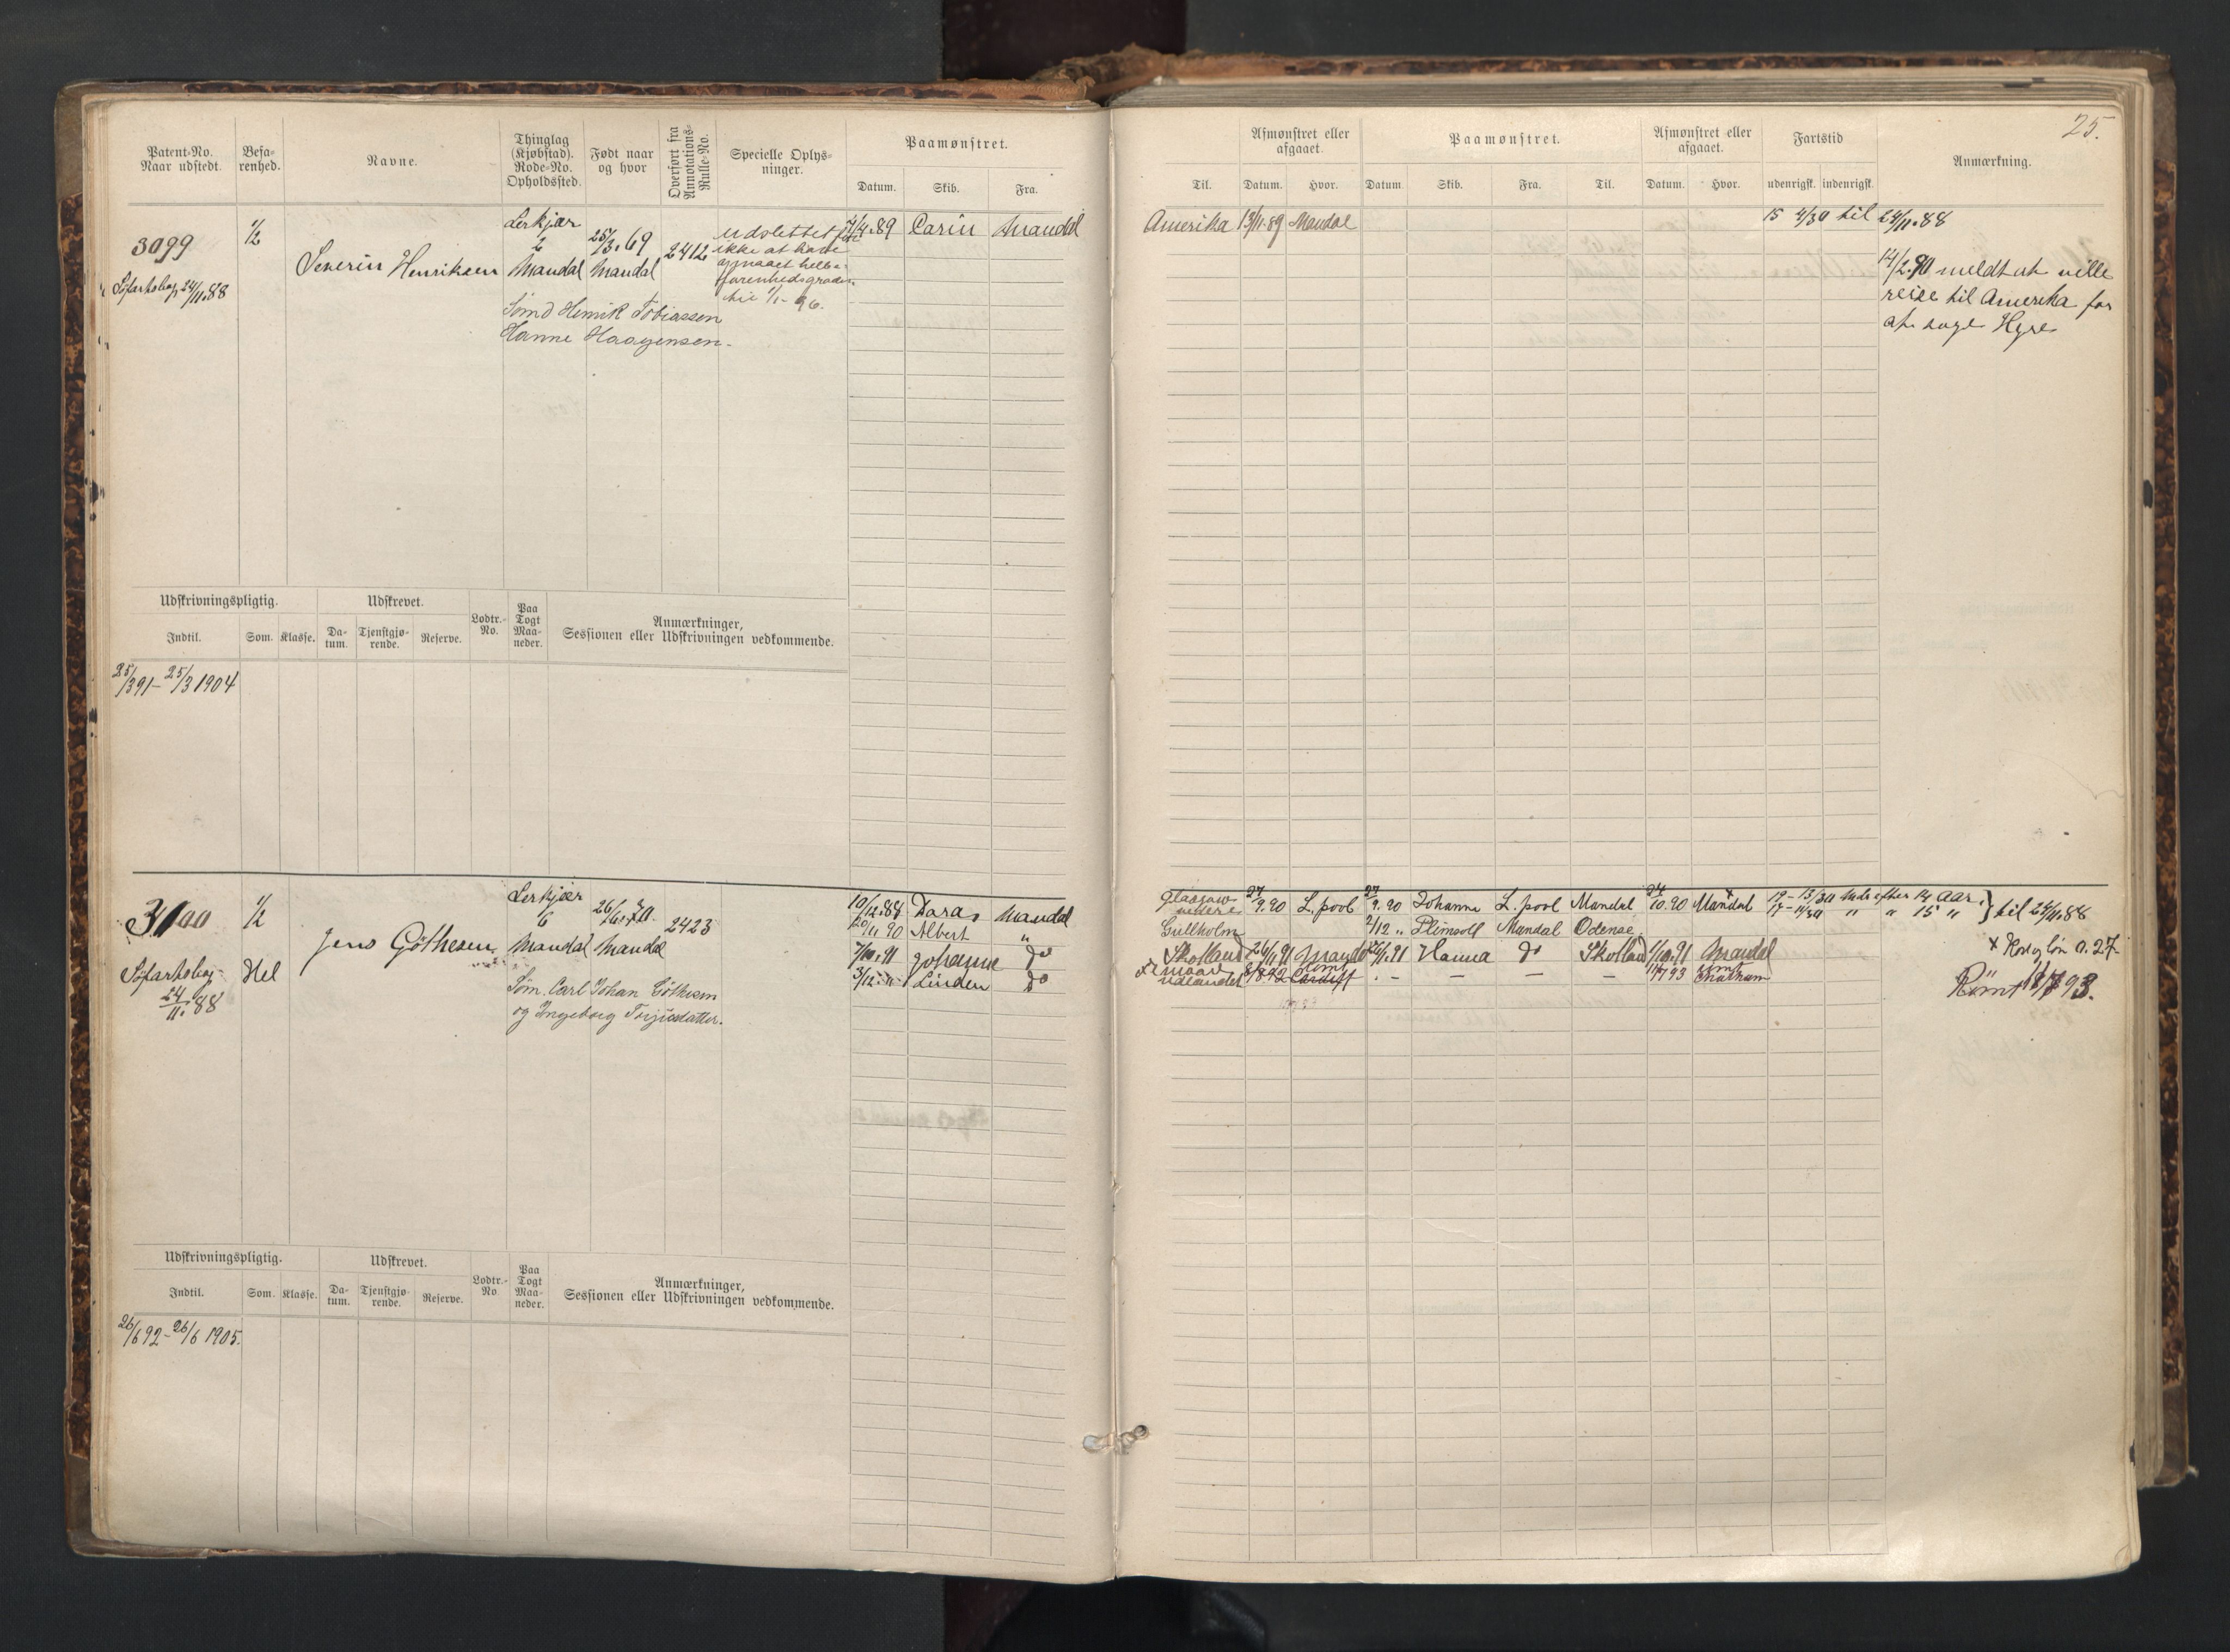 25.
Patent-No.
Naar udstedt.
Befa-
renhed.
Navne.
Thinglag
(Kjøbstad).
Rode-No.
Opholdssted.
Født naar
og hvor
Overført fra
Annotations-
Rulle-No.
Specielle Oplys-
ninger.
Paamønstret.
Datum.
Skib.
Fra.
Til.
Afmønstret eller
afgaaet.
Datum.
Hvor.
Paamønstret.
Datum
Skib.
Fra.
Til.
Afmønstret eller
afgaaet.
Datum.
Hvor.
Fartstid
udenrigsk.
indenrigsk.
Anmærkning.
3099
Søfartsbog 24/11.88
1/2
Severin Henriksen
Lerkjær
2
Mandal
25/3.69
Mandal
2412
Søm d Henrik Tobiassen
Hanne Haagensen.
udslettet
ikke at have
opnaaet helbe-
farenhedsgraden
1/1-96.
4.89
Carin
Mandal
Amerika
13/11.89
Mandal
15 4/30 til 24/11.88
14/2.90 meldt at ville
reise til Amerika for
at søge Hyre
Udskrivningspligtig.
Indtil.
Som.
Klasse.
Udskrevet.
Da-
tum.
Tjenstgjø-
rende.
Reserve.
Lodtr.-
No.
Paa
Togt
Maa-
neder.
Anmærkninger,
Sessionen eller Udskrivningen vedkommende.
25/3 91 - 25/3 1904
3100
Søfartsbog
24/11.88
1/2
Hel
Jens Göthesen
Lerkjær
6
Mandal
26/6.70.
Mandal
2423
Søm. Carl Johan Göthesen
og Ingeborg Terjesdatter.
10/12.88 Dara Mandal
20/11 90 Albert "
7/10.91 Johanne do
3/12 " Linden do
Glasgow
27/9.90 L.pool 27/9.90 Johanne L.pool Mandal 24/10.90 Mandal
Gullholm 2/12 " Plimsoll Mandal Odense
Skotland 26/11.91 Mandal 26/1.91 Hanna do Skotland 1/10.91 Mandal
udlandet 8/8.92 Cardiff - - - - 11/7 93 Chatham
19 - 13/30 Mdr efter 14 Aar.
17 - 11/30 " " 15 " } til 24/11.88
Rømt 18/7 93.
Udskrivningspligtig.
Indtil.
Som.
Klasse.
Udskrevet.
Da-
tum.
Tjenstgjø-
rende.
Reserve.
Lodtr.-
No
Paa
Togt
Maa-
neder.
Anmærkninger,
Sessionen eller Udskrivningen vedkommende.
26/6 92 - 26/6 1905.